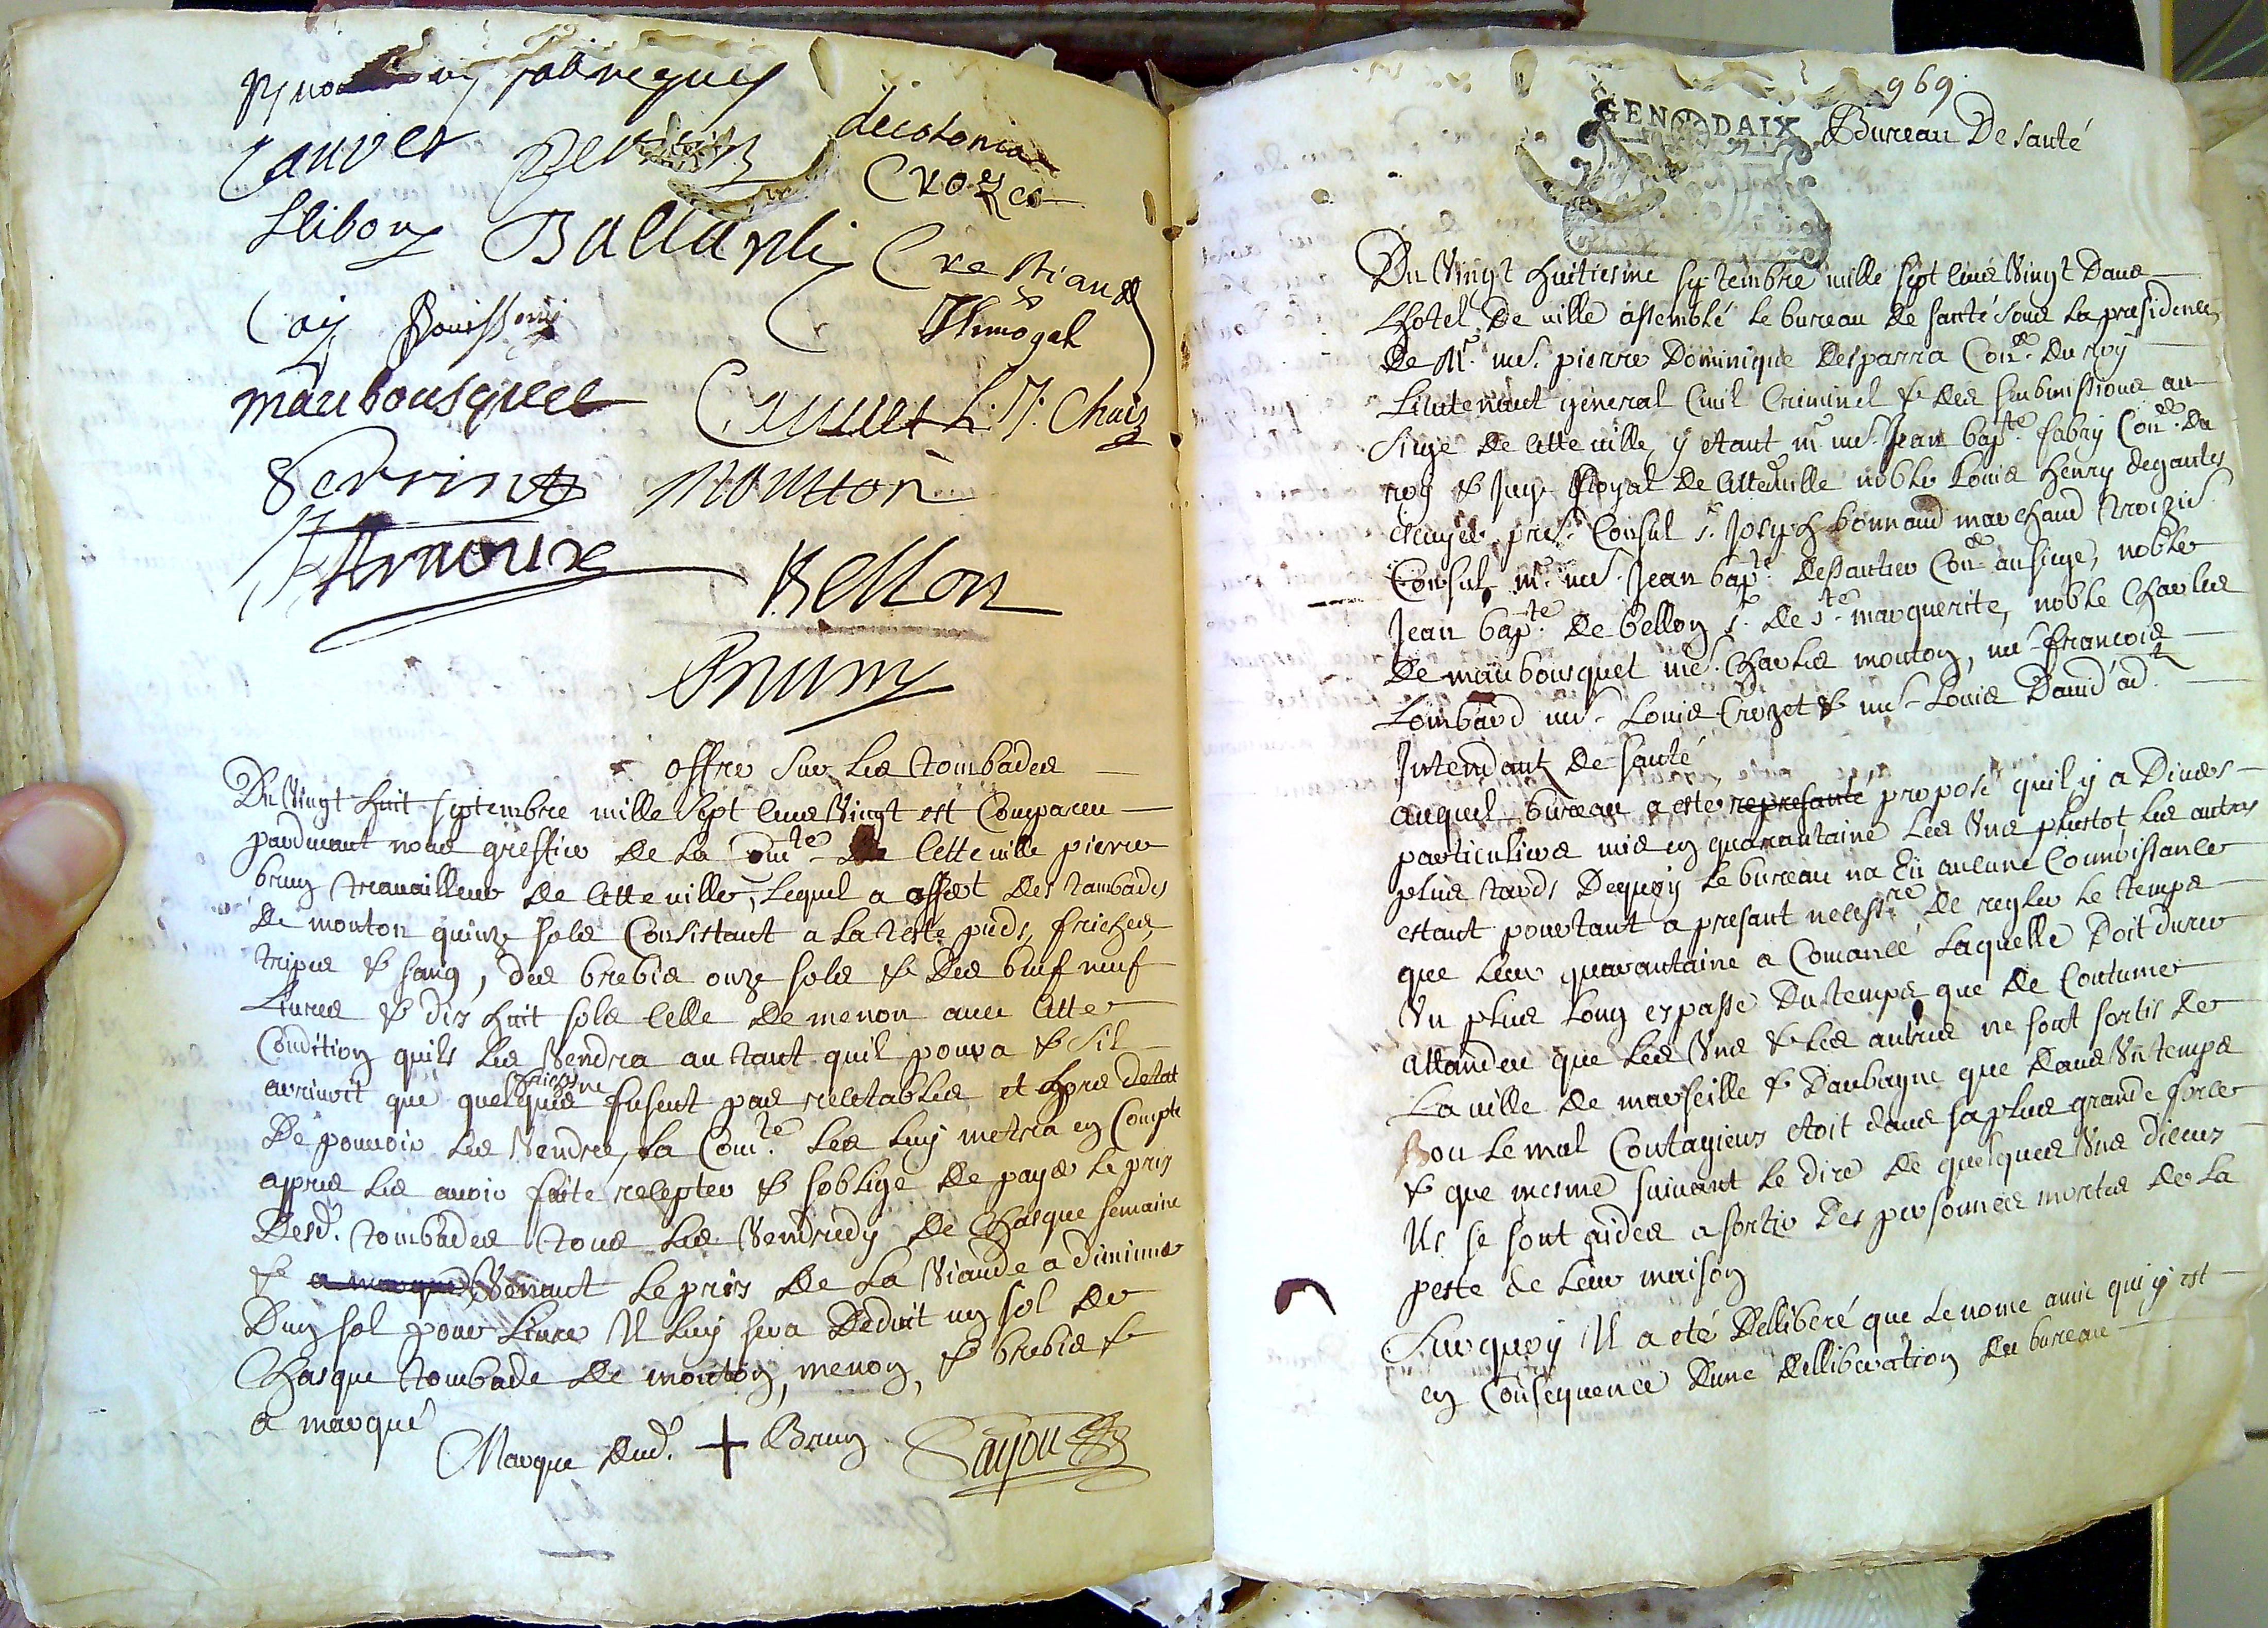 fabregues
Cauvet decolonia
Crozet
Ballardi Crestian
Cay Bouisson Simogal
Maubousquet L. J. Chaix
Perrin Mouton
Arnoux
Bellon
Bruny
offre sur les tombades
Du vingt huit septembre mille sept cens vingt est compareu
pardevant nous greffier de la Comte de cette ville pierre
brun travailleur de cette ville, lequel a offert des tambades
de mouton quinze sols consistant a la teste pieds, friches
tripes & sang, des brebis onze sols & des beuf neuf
livres & dix huit sols celle de menon avec cette
condition quils les vendra autant quil poura & sil
arrivoit que quelquns fusent pas recetables et hors detat
De pouvoir les vendre, la Comte les luy metra en compte
appres les avoir faite recepter & soblige de payer le prix
Desd. tombades tous les vendredy de chasque semaine
& a marqué venant le prix de la viande a diminuer
Dun sol pour livre il luy sera deduit un sol de
chasque tombade de mouton, menon, & brebis &
a marqué
Marque dud. + Brun Sayou
969
GEN DAIX
Bureau De santé
Du vingt huitiesme septembre mille sept cens vingt dans
Lhotel de ville assemblé le bureau de santé sous la presidence
de Mr. me. pierre Dominique Desparra Conr. du roy
Lieutenant general civil criminel & des submissions au
siege de cette ville y etant mr. me. Jean bapte. fabry Conr. du
roy & juge Royal de cette ville noble Louis Henry degantes
escuyer pre. Consul sr. Joseph bonnaud marchand troizie.
Consul, mr. me. Jean bapte. Dessautier Conr. au siege, noble
Jean bapte. de bellon sr. de ste. marguerite, noble Charles
de maubousquet me. Charles mouton, me. francois
Lombard me. Louis Crozet & me. Louis David adt.
Intendant de santé
auquel bureau a este represanté proposé quil y a Divers
particuliers mis en quarantaine les uns plustot les autres
plus tards dequoy le bureau na eü aucune connoissance
estant pourtant a presant necessre. de regler le temps
que leur quarantaine a comancé laquelle doit durer
un plus long espasse du temps que de coutume
attandeu que les uns & les autres ne sont sortis de
la ville de marseille & daubagne que dans un temps
ou le mal contagieux etoit dans sa plus grande force
& que mesme suivant le dire de quelques uns dieux
ils se sont aides a sortir des personnes mortes de la
peste de leur maison
Sur quoy il a eté dellibéré que le nome amic qui y est
en consequence dune delliberation du bureau